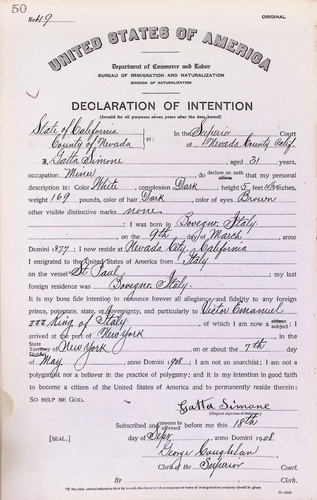 50
ORIGINAL
No. 49
UNITED STATES OF AMERICA
Department of Commerce and Labor
BUREAU OF IMMIGRATION AND NATURALIZATION
DIVISION OF NATURALIZATION
DECLARATION OF INTENTION
(Invalid for all purposes seven years after the date hereof)
State of California
County of Nevada ss:
In the Superior Court
of Nevada County Calif.
I, Gatta Simone, aged 31 years,
occupation Miner, do declare on oath affirm that my personal
description is: Color White, complexion Dark, height 5 feet inches,
weight 169 pounds, color of hair Dark, color of eyes Brown
other visible distinctive marks none
; I was born in Bovegno, Italy.
on the 9th day of March, anno
Domini 1877; I now reside at Nevada City, California
I emigrated to the United States of America from Italy
on the vessel St. Paul; my last
foreign residence was Bovegno, Italy.
It is my bona fide intention to renounce forever all allegiance and fidelity to any foreign
prince, potentate, state, or sovereignty, and particularly to Victor Emanuel
III King of Italy, of which I am now a subject; I
arrived at the port of New York, in the
State Territory District of New York on or about the 7th day
of May, anno Domini 1908; I am not an anarchist; I am not a
polygamist nor a believer in the practice of polygamy; and it is my intention in good faith
to become a citizen of the United States of America and to permanently reside therein:
SO HELP ME GOD.
Gatta Simone
(Original signature of declarant)
Subscribed and sworn to affirmed before me this 18th
[SEAL.] day of Sept., anno Domini 1908.
George Coughlan
Clerk of the Superior Court.
By , Clerk.